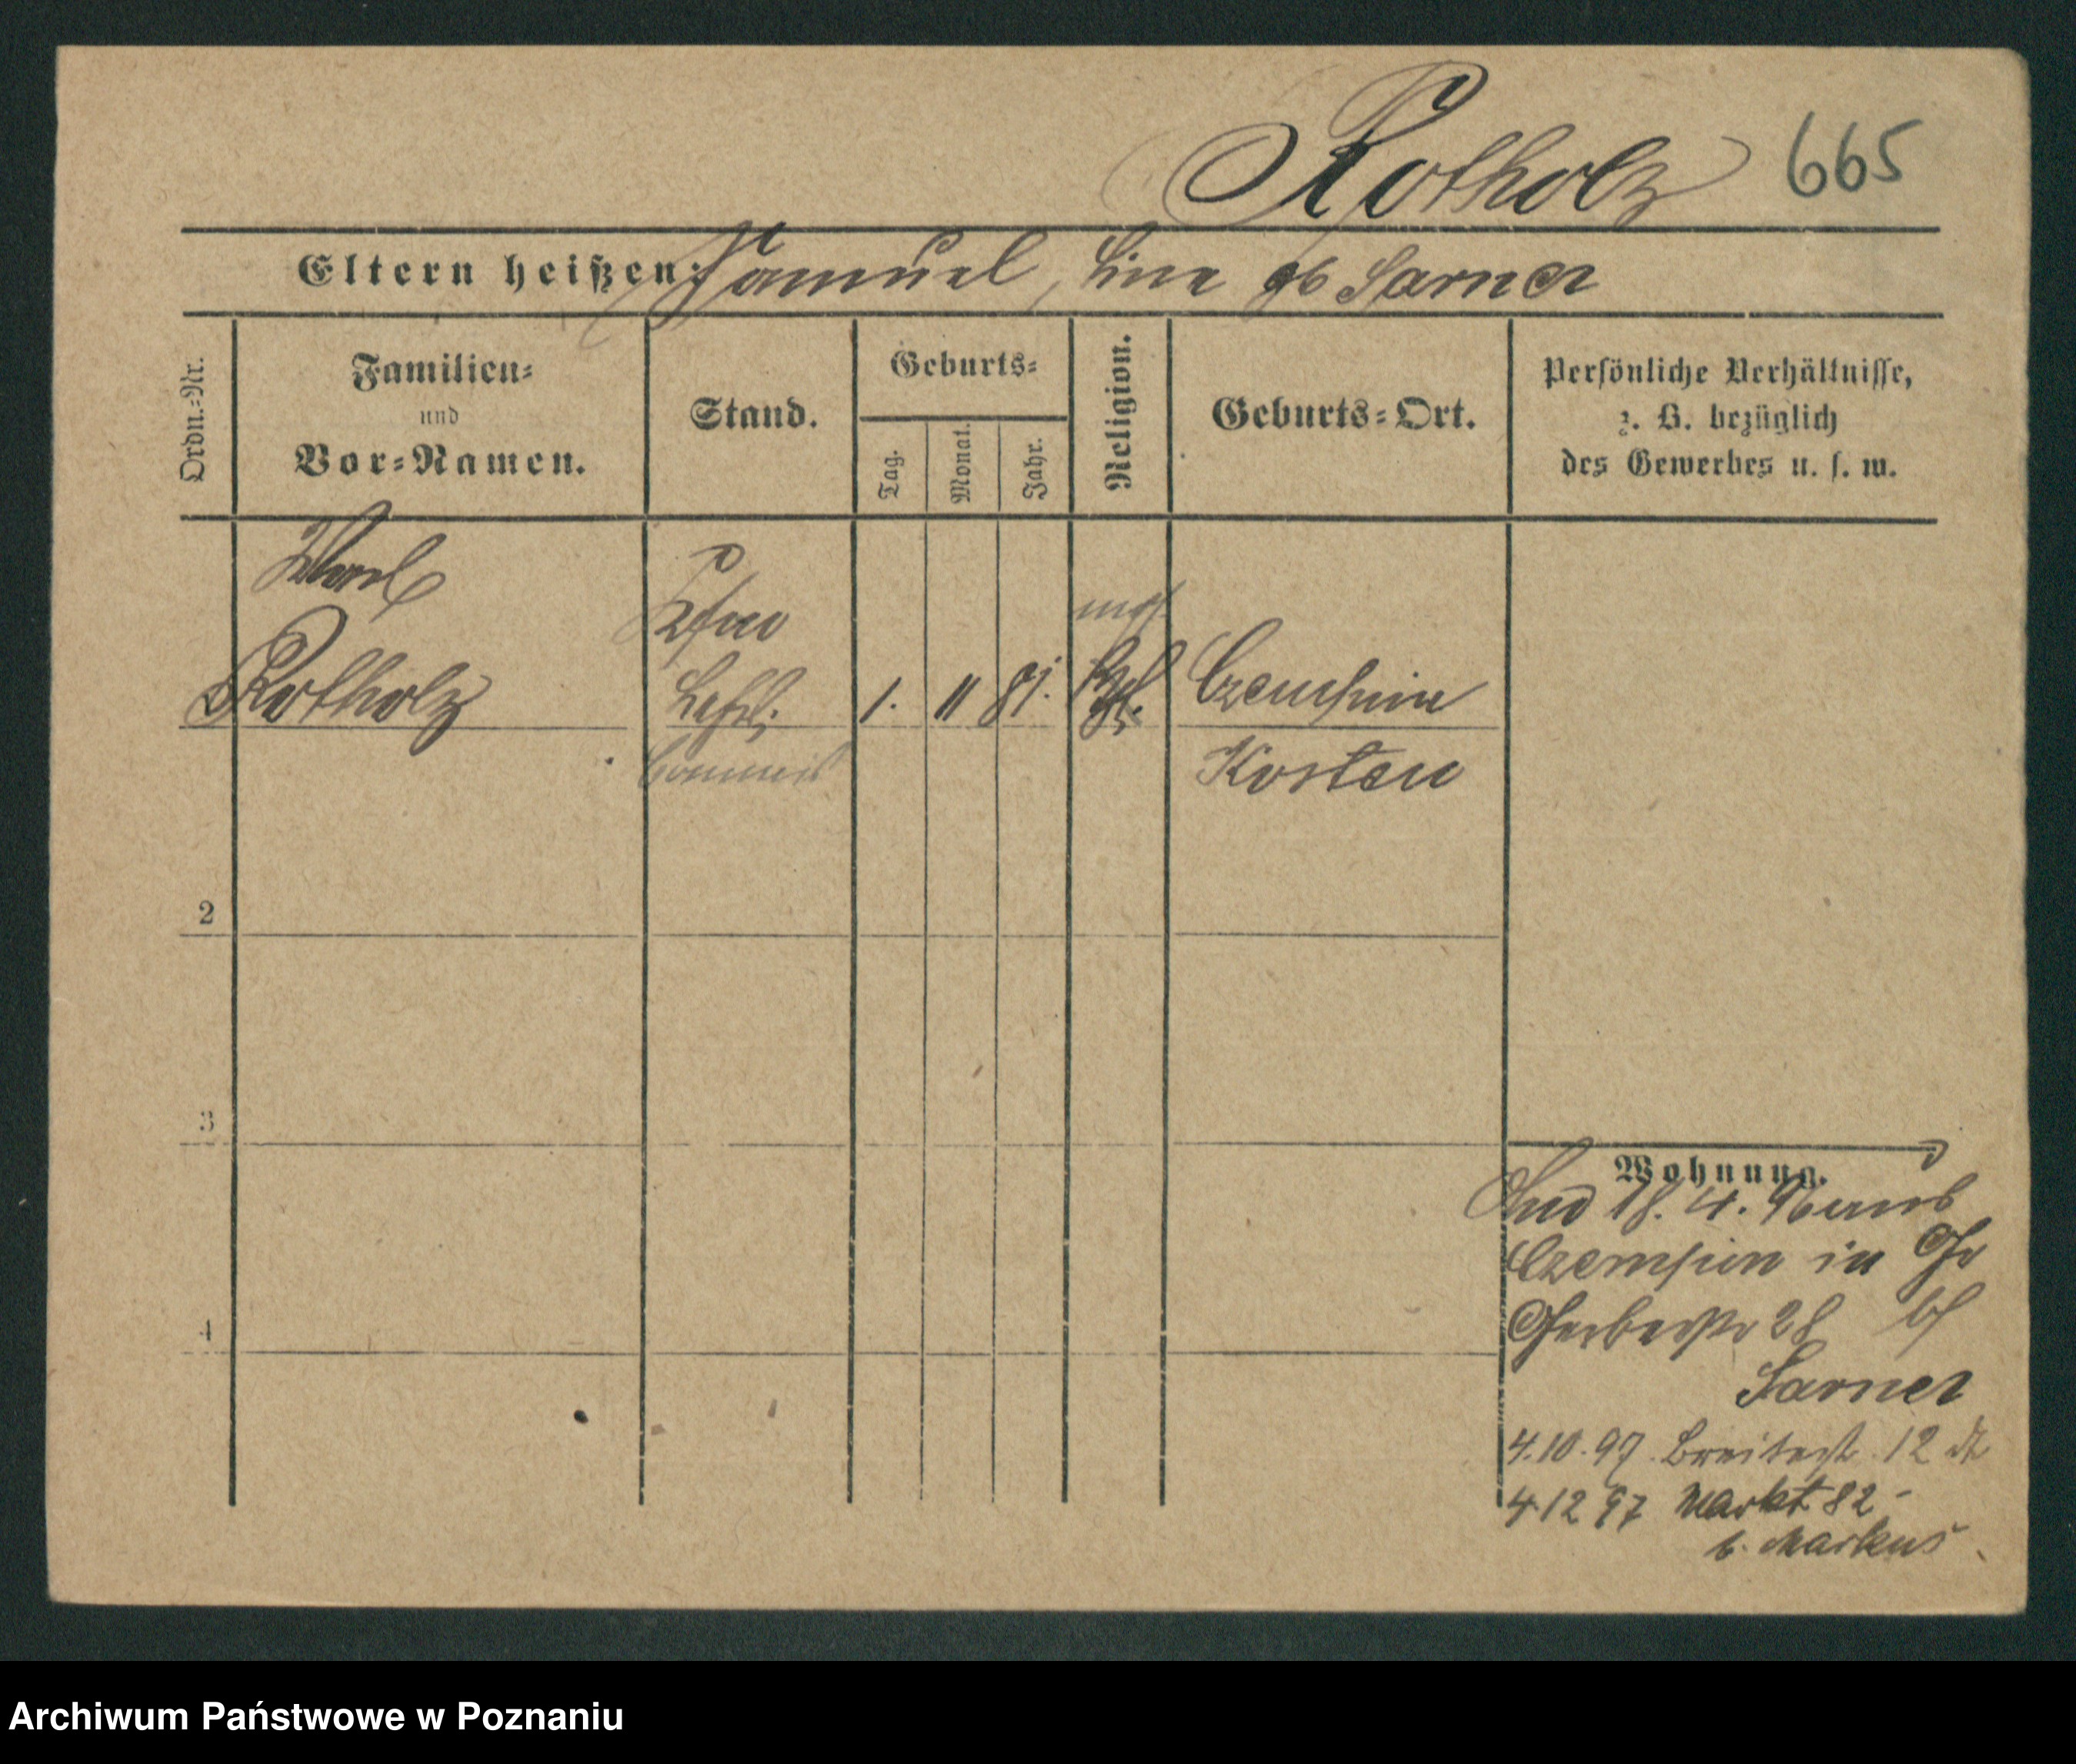 Rotholz 665
Eltern heißen: Samuel, Line gb Sarner
Ordn.-Nr.
Familien-
und
Vor-Namen.
Stand.
Geburts-
Tag.
Monat.
Jahr.
Religion.
Geburts-Ort.
Persönliche Verhältnisse,
z. B. bezüglich
des Gewerbes u. s. w.
Rotholz
Lehrl.
1. 11 81.
mos
Czempin
Commis
Kosten
2
3
4
Wohnung.
18. 4. 96
Czempin in
Gerberstr 28 bf
Sarner
4.10.97. Breitestr. 12
4 12 97 Markt 82
b. Markus
Archiwum Państwowe w Poznaniu